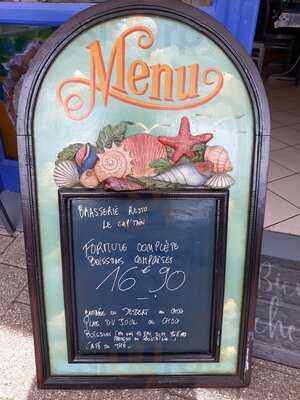 Menu
BRASSERIE RESTO
LE CAPITAIN
FORMULE COMPLÈTE
BOISSONS COMPRISES
16€90
ENTRÉE OU DESSERT AU CHOIX
PLAT DU JOUR AU CHOIX
BOISSON
CAFÉ OU THÉ